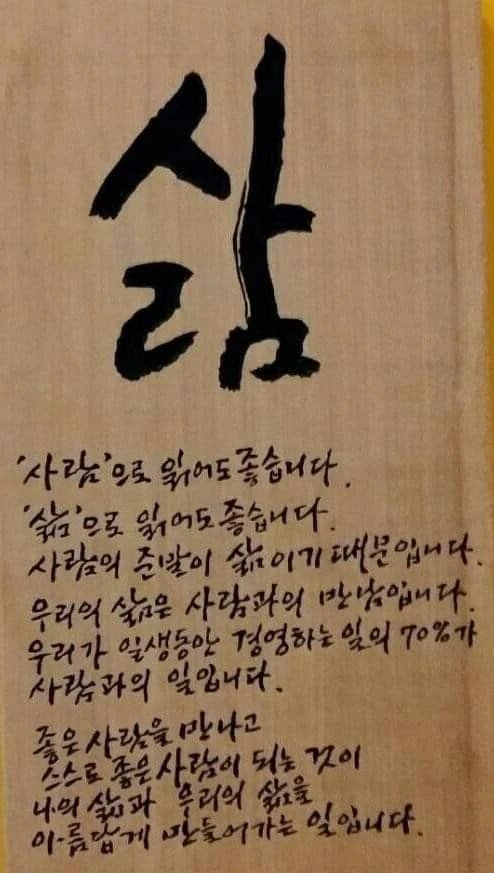 삶
'사람'으로 읽어도 좋습니다.
'삶'으로 읽어도 좋습니다.
사람의 준말이 삶이기 때문입니다.
우리의 삶은 사람과의 만남입니다.
우리가 일생동안 경영하는 일의 70%가
사람과의 일입니다.
좋은 사람을 만나고
스스로 좋은 사람이 되는 것이
나의 삶과 우리의 삶을
아름답게 만들어가는 일입니다.